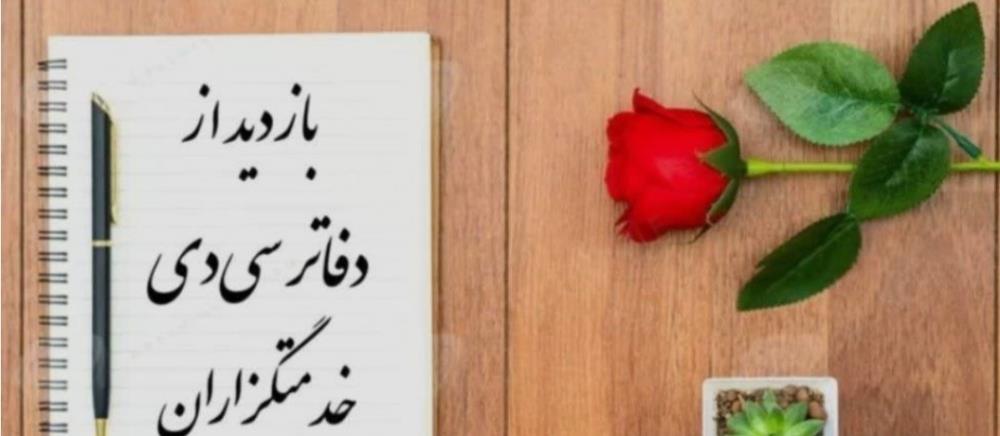 بازدید از
دفاتر سی‌دی
خدمتگزاران